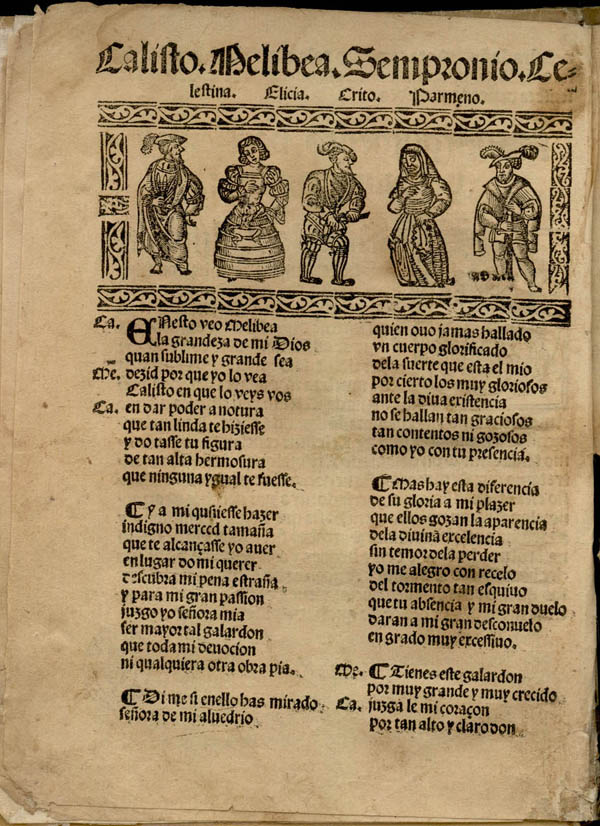 Calisto. Melibea. Sempronio. Ce-
lestina. Elicia. Crito. Parmeno.
Ca. ENesto veo Melibea
la grandeza de mi Dios
quan sublime y grande sea
Me. dezid por que yo lo vea
Calisto en que lo veys vos
Ca. en dar poder a notura
que tan linda te hiziesse
y do tasse tu figura
de tan alta hermosura
que ninguna ygual te fuesse.
¶ y a mi qusiesse hazer
indigno merced tamaña
que te alcançasse yo a uer
en lugar do mi querer
descubra mi pena estraña
y para mi gran passion
juzgo yo señora mia
ser mayor tal galardon
que toda mi deuocion
ni qualquiera otra obra pia.
¶ Di me si enello has mirado
señora de mi aluedrio
quien ouo jamas hallado
vn cuerpo glorificado
dela suerte que esta el mio
por cierto los muy gloriosos
ante la diua existencia
no se hallan tan graciosos
tan contentos ni gozosos
como yo con tu presencia.
¶ Mas hay esta diferencia
de su gloria a mi plazer
que ellos gozan la aparencia
dela diuina excelencia
sin temor dela perder
yo me alegro con recelo
del tormento tan esquiuo
que tu absencia y mi gran duelo
daran a mi gran desconuelo
en grado muy excessiuo.
Me. ¶ Tienes este galardon
por muy grande y muy crecido
Ca. juzga le mi coraçon
por tan alto y claro don